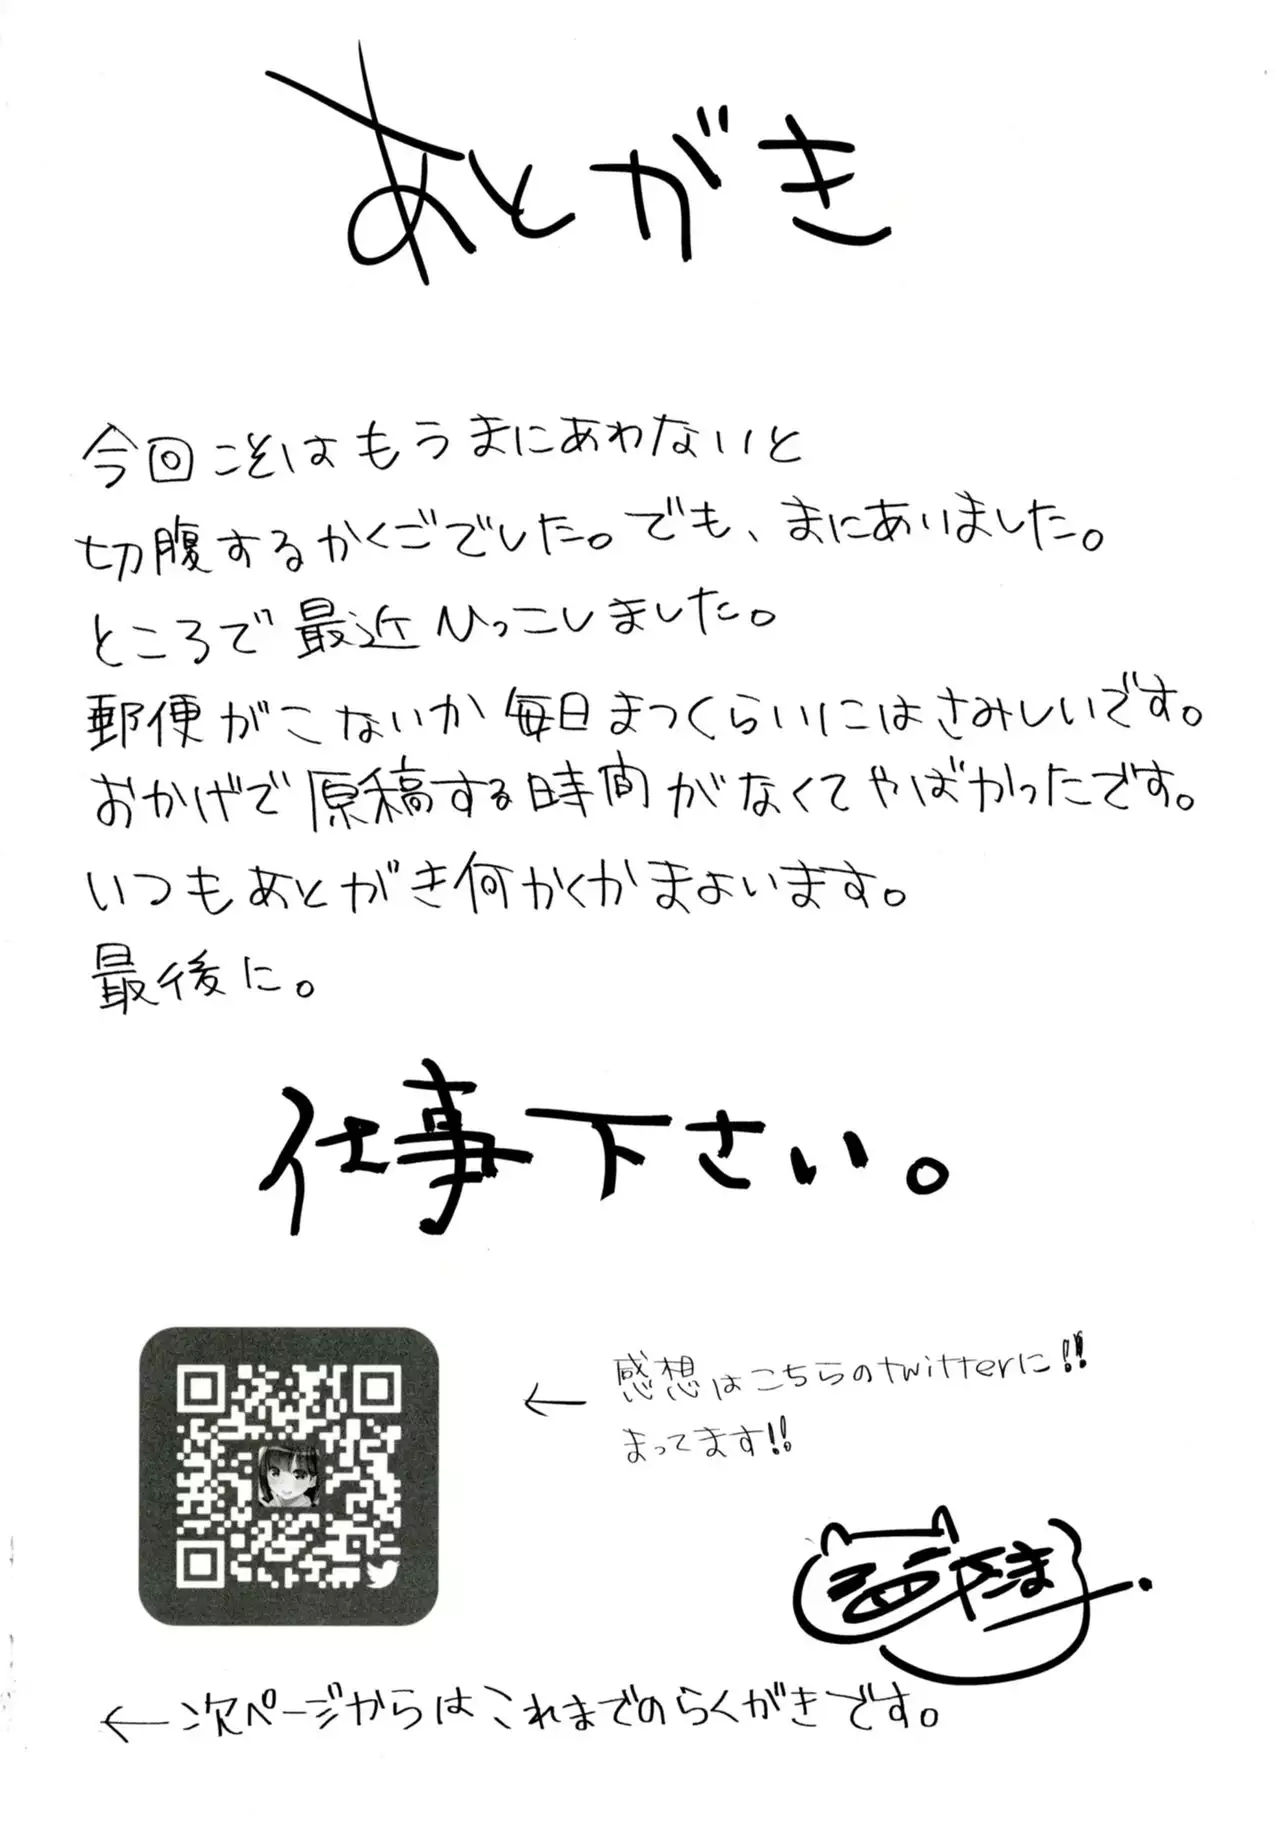 あとがき
今回こそはもうまにあわないと
切腹するかくごでした。でも、まにあいました。
ところで最近ひっこしました。
郵便がこないか毎日まつくらいにはさみしいです。
おかげで原稿する時間がなくてやばかったです。
いつもあとがき何かくかまよいます。
最後に。
仕事下さい。
← 感想はこちらのtwitterに!!
まってます!!
やま
← 次ページからはこれまでのらくがきです。